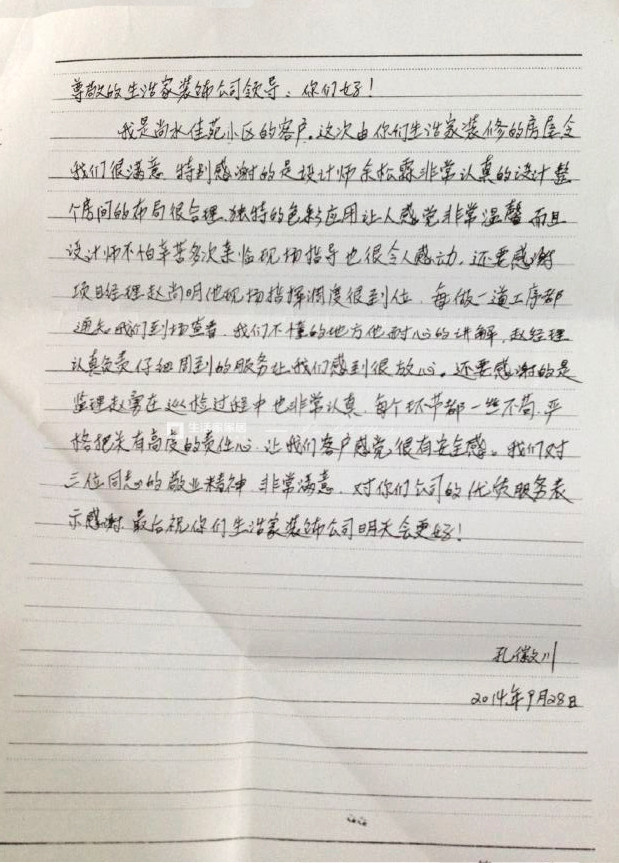 尊敬的生活家装饰公司领导：你们好！
我是尚水佳苑小区的客户。这次由你们生活家装修的房屋令
我们很满意 特别感谢的是设计师余松霖非常认真的设计 整
个房间的布局很合理、独特的色彩应用让人感觉非常温馨 而且
设计师不怕辛苦多次亲临现场指导也很令人感动，还要感谢
项目经理赵尚明他现场指挥调度很到位，每做一道工序都
通知我们到场查看，我们不懂的地方他耐心的讲解，赵经理
认真负责 仔细周到的服务让我们感到很放心。还要感谢的是
监理赵勇在巡检过程中也非常认真，每个环节都一丝不苟，严
生活家家居
格把关有高度的责任心，让我们客户感觉很有安全感。我们对
三位同志的敬业精神 非常满意，对你们公司的优质服务表
示感谢 最后祝你们生活家装饰公司明天会更好！
孔 川
2014年9月28日